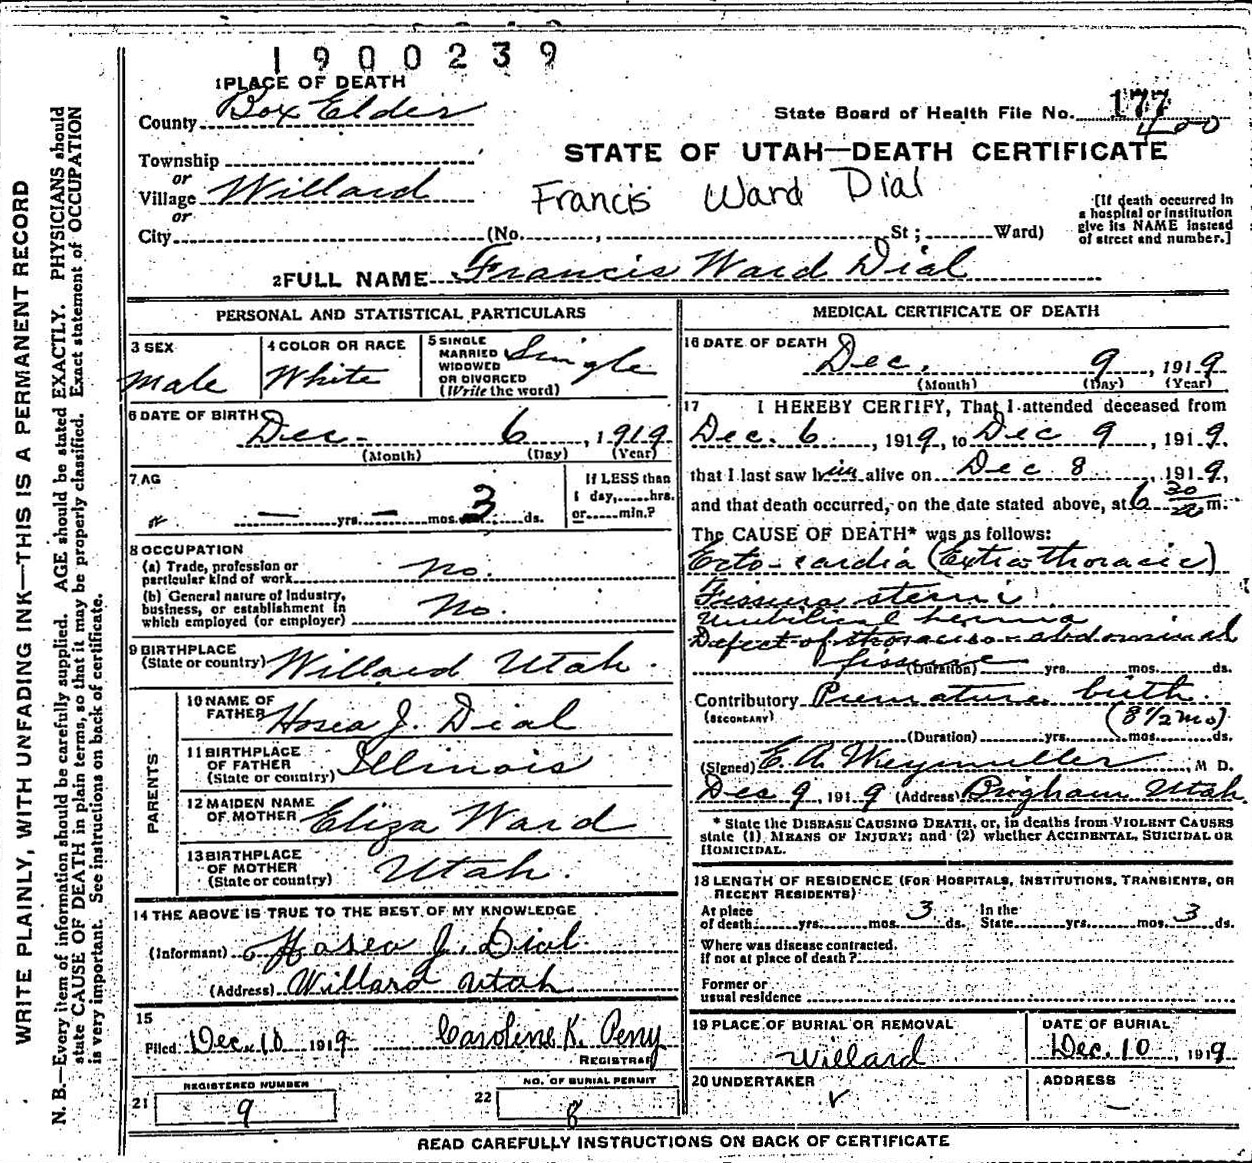 1900239
1 PLACE OF DEATH
County Box Elder
State Board of Health File No. 177
400
Township
or
Village Willard
or
City (No. , St ; Ward)
STATE OF UTAH—DEATH CERTIFICATE
Francis Ward Dial
[If death occurred in
a hospital or institution
give its NAME instead
of street and number.]
2 FULL NAME Francis Ward Dial
PERSONAL AND STATISTICAL PARTICULARS
3 SEX
Male
4 COLOR OR RACE
White
5 SINGLE
MARRIED
WIDOWED
OR DIVORCED
(Write the word)
Single
6 DATE OF BIRTH
Dec. 6, 1919
(Month) (Day) (Year)
7 AG
— yrs. — mos. 3 ds.
If LESS than
1 day, hrs.
or min.?
8 OCCUPATION
(a) Trade, profession or
particular kind of work no.
(b) General nature of industry,
business, or establishment in
which employed (or employer) No.
9 BIRTHPLACE
(State or country) Willard Utah.
PARENTS
10 NAME OF
FATHER Hosea J. Dial
11 BIRTHPLACE
OF FATHER
(State or country) Illinois
12 MAIDEN NAME
OF MOTHER Eliza Ward
13 BIRTHPLACE
OF MOTHER
(State or country) Utah.
14 THE ABOVE IS TRUE TO THE BEST OF MY KNOWLEDGE
(Informant) Hosea J. Dial
(Address) Willard Utah
15
Filed Dec. 10 1919 Caroline K. Perry
REGISTRAR
REGISTERED NUMBER
21 9
NO. OF BURIAL PERMIT
22 8
MEDICAL CERTIFICATE OF DEATH
16 DATE OF DEATH
Dec. 9, 1919
(Month) (Day) (Year)
17 I HEREBY CERTIFY, That I attended deceased from
Dec. 6, 1919, to Dec 9, 1919.
that I last saw him alive on Dec 8, 1919,
and that death occurred, on the date stated above, at 6 30 m.
The CAUSE OF DEATH* was as follows:
Ecto-cardia (Extrathoracic)
Fissura sterni
Umbilical hernia
Defect of thoracico-abdominal
fissure
(Duration) yrs. mos. ds.
Contributory Premature birth.
(SECONDARY) (8 1/2 mo)
(Duration) yrs. mos. ds.
(Signed) E. A. Weymuller, M D.
Dec 9, 1919 (Address) Brigham Utah.
* State the DISEASE CAUSING DEATH, or, in deaths from VIOLENT CAUSES
state (1) MEANS OF INJURY; and (2) whether ACCIDENTAL, SUICIDAL OR
HOMICIDAL.
18 LENGTH OF RESIDENCE (FOR HOSPITALS, INSTITUTIONS, TRANSIENTS, OR
RECENT RESIDENTS)
At place
of death yrs. mos. 3 ds. In the
State yrs. mos. 3 ds.
Where was disease contracted.
If not at place of death?
Former or
usual residence
19 PLACE OF BURIAL OR REMOVAL
Willard
DATE OF BURIAL
Dec. 10, 1919
20 UNDERTAKER
✓
ADDRESS
—
READ CAREFULLY INSTRUCTIONS ON BACK OF CERTIFICATE
WRITE PLAINLY, WITH UNFADING INK—THIS IS A PERMANENT RECORD
N. B.—Every item of information should be carefully supplied. AGE should be stated EXACTLY. PHYSICIANS should
state CAUSE OF DEATH in plain terms, so that it may be properly classified. Exact statement of OCCUPATION
is very important. See instructions on back of certificate.